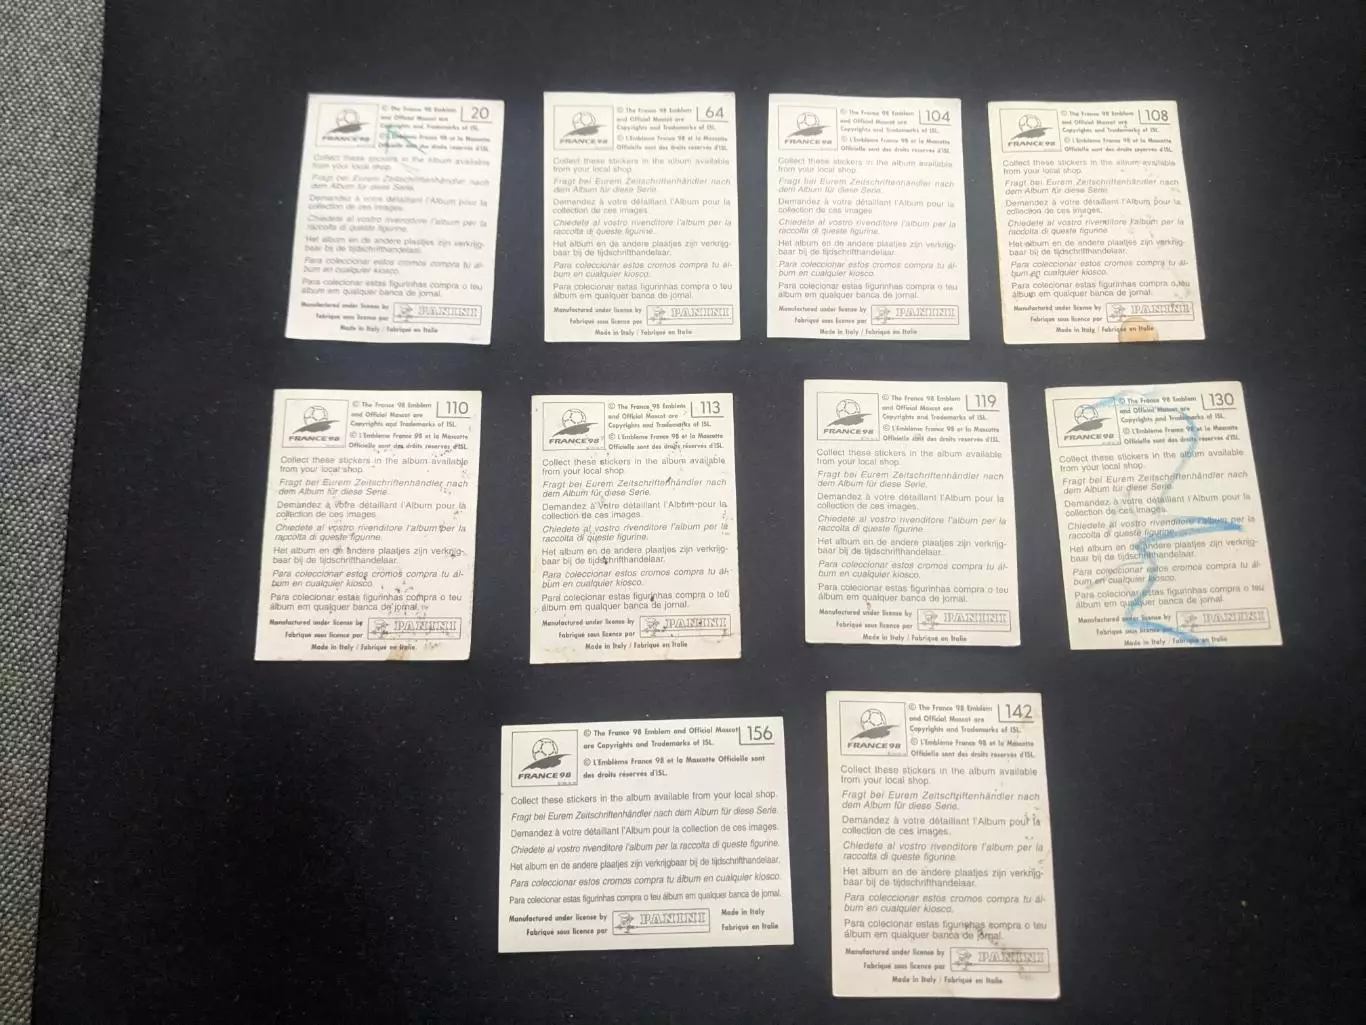 20
© The France 98 Emblem
and Official Mascot are
Copyrights and Trademarks of ISL.
© L'Emblème France 98 et la Mascotte
Officielle sont des droits réservés d'ISL
FRANCE 98
Collect these stickers in the Album available
from your local shop.
Fragt bei Eurem Zeitschriftenhändler nach
dem Album für diese Serie.
Demandez à votre détaillant l'Album pour la
collection de ces images.
Chiedete al vostro rivenditore l'album per la
raccolta di queste figurine.
Het album en de andere plaatjes zijn verkrijg-
baar bij de tijdschrifthandelaar.
Para coleccionar estos cromos compra tu ál-
bum en cualquier kiosco.
Para colecionar estas figurinhas compra o teu
álbum em qualquer banca de jornal.
Manufactured under license by
Fabriqué sous licence par
PANINI
Made in Italy / Fabriqué en Italie
64
© The France 98 Emblem
and Official Mascot are
Copyrights and Trademarks of ISL.
© L'Emblème France 98 et la Mascotte
Officielle sont des droits réservés d'ISL.
FRANCE 98
Collect these stickers in the album available
from your local shop.
Fragt bei Eurem Zeitschriftenhändler nach
dem Album für diese Serie.
Demandez à votre détaillant l'Album pour la
collection de ces images.
Chiedete al vostro rivenditore l'album per la
raccolta di queste figurine.
Het album en de andere plaatjes zijn verkrijg-
baar bij de tijdschrifthandelaar.
Para coleccionar estos cromos compra tu ál-
bum en cualquier kiosco.
Para colecionar estas figurinhas compra o teu
álbum em qualquer banca de jornal.
Manufactured under license by
Fabriqué sous licence par
PANINI
Made in Italy / Fabriqué en Italie
104
© The France 98 Emblem
and Official Mascot are
Copyrights and Trademarks of ISL.
© L'Emblème France 98 et la Mascotte
Officielle sont des droits réservés d'ISL.
FRANCE 98
Collect these stickers in the album available
from your local shop.
Fragt bei Eurem Zeitschriftenhändler nach
dem Album für diese Serie.
Demandez à votre détaillant l'Album pour la
collection de ces images.
Chiedete al vostro rivenditore l'album per la
raccolta di queste figurine.
Het album en de andere plaatjes zijn verkrijg-
baar bij de tijdschrifthandelaar.
Para coleccionar estos cromos compra tu ál-
bum en cualquier kiosco.
Para colecionar estas figurinhas compra o teu
álbum em qualquer banca de jornal.
Manufactured under license by
Fabriqué sous licence par
PANINI
Made in Italy / Fabriqué en Italie
108
© The France 98 Emblem
and Official Mascot are
Copyrights and Trademarks of ISL.
© L'Emblème France 98 et la Mascotte
Officielle sont des droits réservés d'ISL.
FRANCE 98
Collect these stickers in the album available
from your local shop.
Fragt bei Eurem Zeitschriftenhändler nach
dem Album für diese Serie.
Demandez à votre détaillant l'Album pour la
collection de ces images.
Chiedete al vostro rivenditore l'album per la
raccolta di queste figurine.
Het album en de andere plaatjes zijn verkrijg-
baar bij de tijdschrifthandelaar.
Para coleccionar estos cromos compra tu ál-
bum en cualquier kiosco.
Para colecionar estas figurinhas compra o teu
álbum em qualquer banca de jornal.
Manufactured under license by
Fabriqué sous licence par
PANINI
Made in Italy / Fabriqué en Italie
110
© The France 98 Emblem
and Official Mascot are
Copyrights and Trademarks of ISL.
© L'Emblème France 98 et la Mascotte
Officielle sont des droits réservés d'ISL.
FRANCE 98
Collect these stickers in the album available
from your local shop.
Fragt bei Eurem Zeitschriftenhändler nach
dem Album für diese Serie.
Demandez à votre détaillant l'Album pour la
collection de ces images.
Chiedete al vostro rivenditore l'album per la
raccolta di queste figurine.
Het album en de andere plaatjes zijn verkrijg-
baar bij de tijdschrifthandelaar.
Para coleccionar estos cromos compra tu ál-
bum en cualquier kiosco.
Para colecionar estas figurinhas compra o teu
álbum em qualquer banca de jornal.
Manufactured under license by
Fabriqué sous licence par
PANINI
Made in Italy / Fabriqué en Italie
113
© The France 98 Emblem
and Official Mascot are
Copyrights and Trademarks of ISL.
© L'Emblème France 98 et la Mascotte
Officielle sont des droits réservés d'ISL.
FRANCE 98
Collect these stickers in the album available
from your local shop.
Fragt bei Eurem Zeitschriftenhändler nach
dem Album für diese Serie.
Demandez à votre détaillant l'Album pour la
collection de ces images.
Chiedete al vostro rivenditore l'album per la
raccolta di queste figurine.
Het album en de andere plaatjes zijn verkrijg-
baar bij de tijdschrifthandelaar.
Para coleccionar estos cromos compra tu ál-
bum en cualquier kiosco.
Para colecionar estas figurinhas compra o teu
álbum em qualquer banca de jornal.
Manufactured under license by
Fabriqué sous licence par
PANINI
Made in Italy / Fabriqué en Italie
119
© The France 98 Emblem
and Official Mascot are
Copyrights and Trademarks of ISL.
© L'Emblème France 98 et la Mascotte
Officielle sont des droits réservés d'ISL.
FRANCE 98
Collect these stickers in the album available
from your local shop.
Fragt bei Eurem Zeitschriftenhändler nach
dem Album für diese Serie.
Demandez à votre détaillant l'Album pour la
collection de ces images.
Chiedete al vostro rivenditore l'album per la
raccolta di queste figurine.
Het album en de andere plaatjes zijn verkrijg-
baar bij de tijdschrifthandelaar.
Para coleccionar estos cromos compra tu ál-
bum en cualquier kiosco.
Para colecionar estas figurinhas compra o teu
álbum em qualquer banca de jornal.
Manufactured under license by
Fabriqué sous licence par
PANINI
Made in Italy / Fabriqué en Italie
130
© The France 98 Emblem
and Official Mascot are
Copyrights and Trademarks of ISL.
© L'Emblème France 98 et la Mascotte
Officielle sont des droits réservés d'ISL.
FRANCE 98
Collect these stickers in the album available
from your local shop.
Fragt bei Eurem Zeitschriftenhändler nach
dem Album für diese Serie.
Demandez à votre détaillant l'Album pour la
collection de ces images.
Chiedete al vostro rivenditore l'album per la
raccolta di queste figurine.
Het album en de andere plaatjes zijn verkrijg-
baar bij de tijdschrifthandelaar.
Para coleccionar estos cromos compra tu ál-
bum en cualquier kiosco.
Para colecionar estas figurinhas compra o teu
álbum em qualquer banca de jornal.
Manufactured under license by
Fabriqué sous licence par
PANINI
Made in Italy / Fabriqué en Italie
156
© The France 98 Emblem and Official Mascot
are Copyrights and Trademarks of ISL.
© L'Emblème France 98 et la Mascotte Officielle sont
des droits réservés d'ISL.
FRANCE 98
Collect these stickers in the album available from your local shop.
Fragt bei Eurem Zeitschriftenhändler nach dem Album für diese Serie.
Demandez à votre détaillant l'Album pour la collection de ces images.
Chiedete al vostro rivenditore l'album per la raccolta di queste figurine.
Het album en de andere plaatjes zijn verkrijgbaar bij de tijdschrifthandelaar.
Para coleccionar estos cromos compra tu álbum en cualquier kiosco.
Para colecionar estas figurinhas compra o teu álbum em qualquer banca de jornal.
Manufactured under license by
Fabriqué sous licence par
PANINI
Made in Italy
Fabriqué en Italie
142
© The France 98 Emblem
and Official Mascot are
Copyrights and Trademarks of ISL.
© L'Emblème France 98 et la Mascotte
Officielle sont des droits réservés d'ISL.
FRANCE 98
Collect these stickers in the album available
from your local shop.
Fragt bei Eurem Zeitschriftenhändler nach
dem Album für diese Serie.
Demandez à votre détaillant l'Album pour la
collection de ces images.
Chiedete al vostro rivenditore l'album per la
raccolta di queste figurine.
Het album en de andere plaatjes zijn verkrijg-
baar bij de tijdschrifthandelaar.
Para coleccionar estos cromos compra tu ál-
bum en cualquier kiosco.
Para colecionar estas figurinhas compra o teu
álbum em qualquer banca de jornal.
Manufactured under license by
Fabriqué sous licence par
PANINI
Made in Italy / Fabriqué en Italie